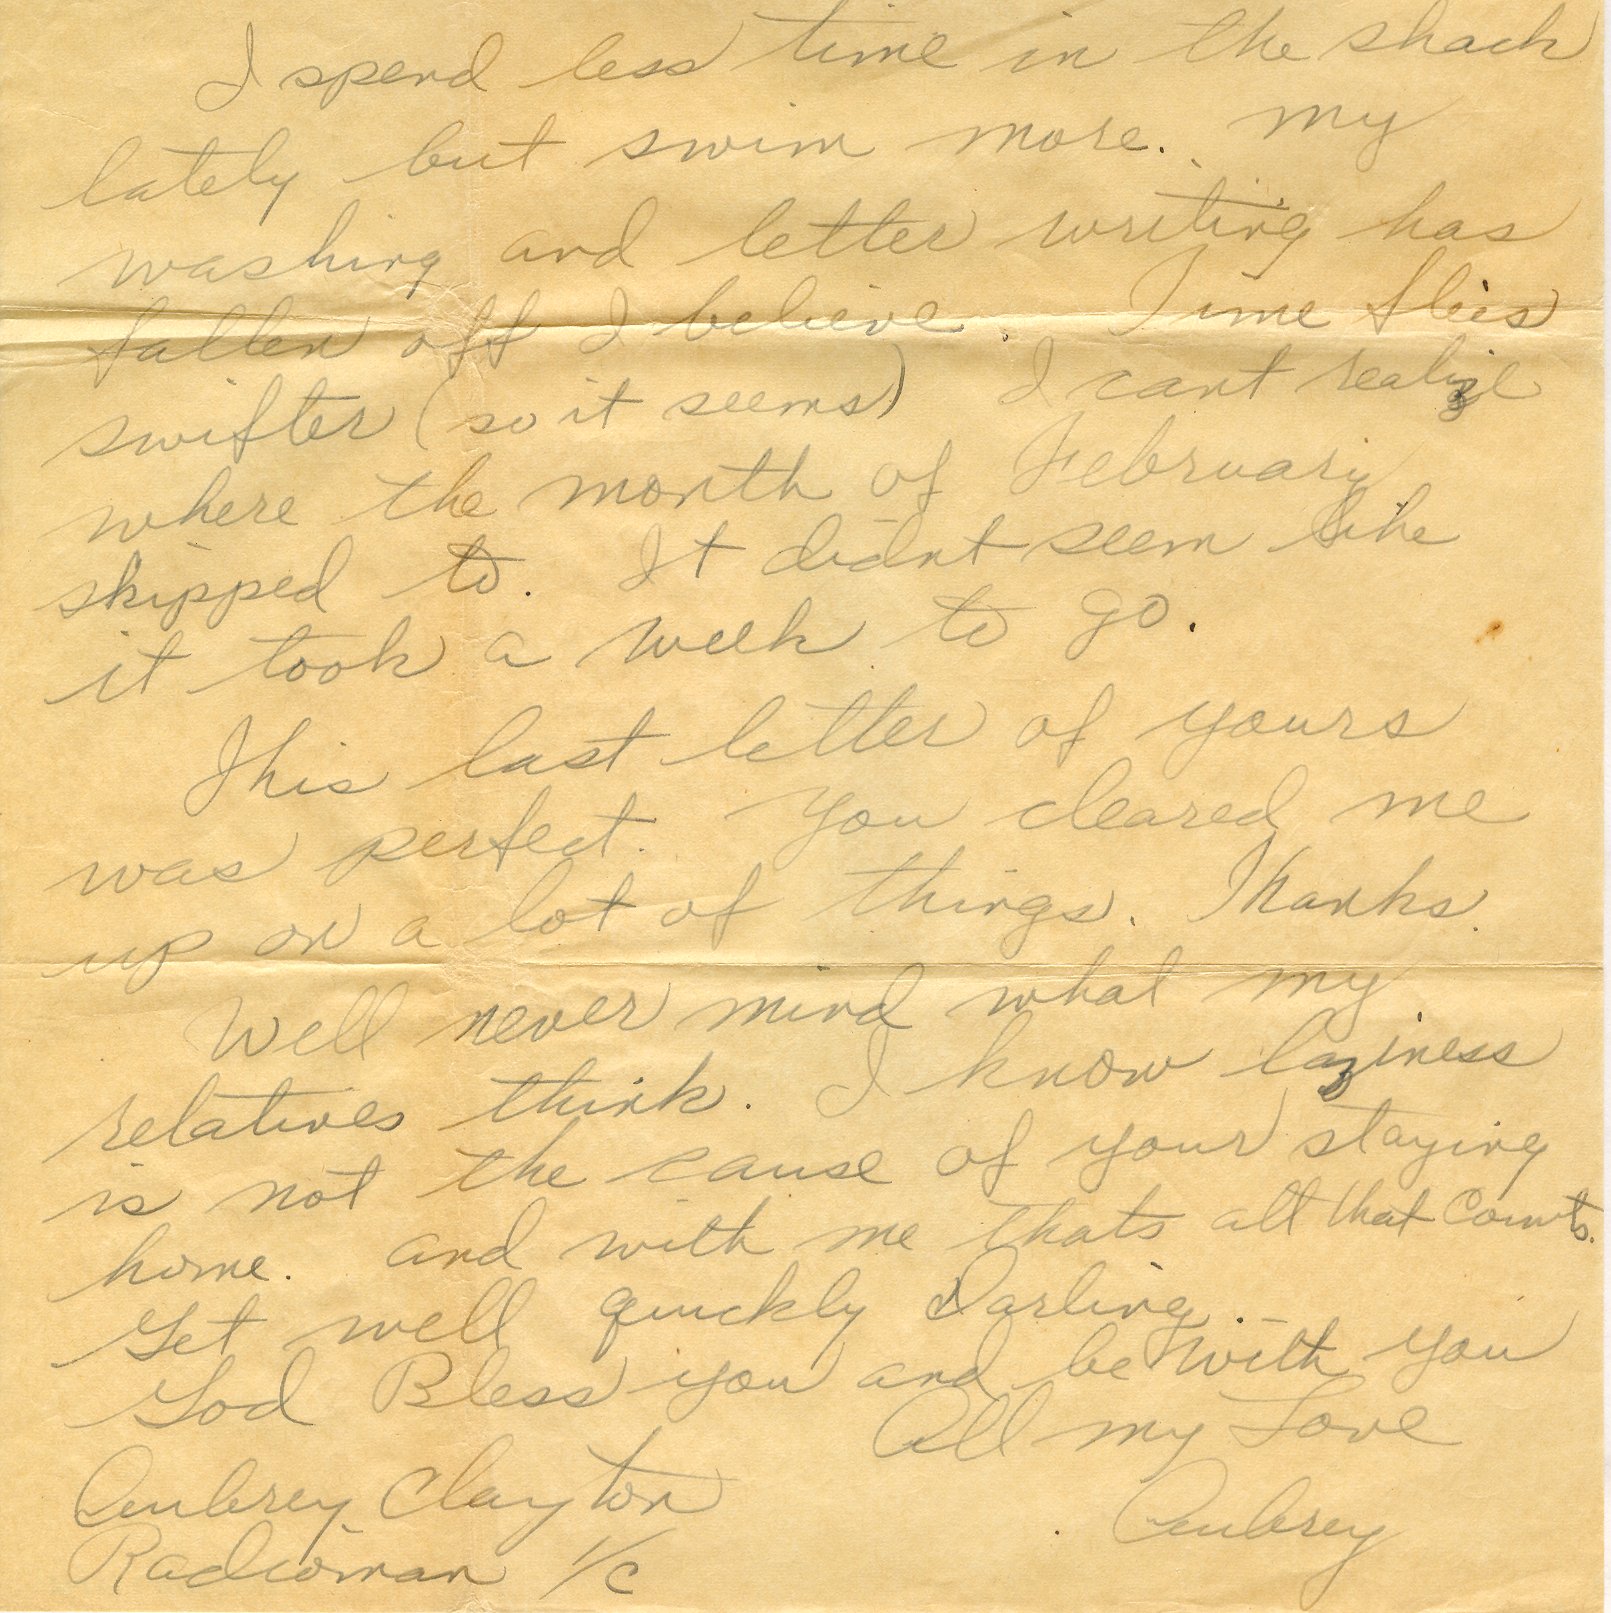 I spend less time in the shack
lately but swim more. my
washing and letter writing has
fallen off I believe. Time flies
swifter (so it seems) I cant realize
where the month of February
skipped to. It didnt seem like
it took a week to go.
This last letter of yours
was perfect. You cleared me
up on a lot of things. Thanks.
Well never mind what my
relatives think. I know laziness
is not the cause of your staying
home. and with me thats all that Counts.
Get well quickly Darling.
God Bless you and be with you
All my Love
Aubrey
Aubrey Clayton
Radioman 1/c